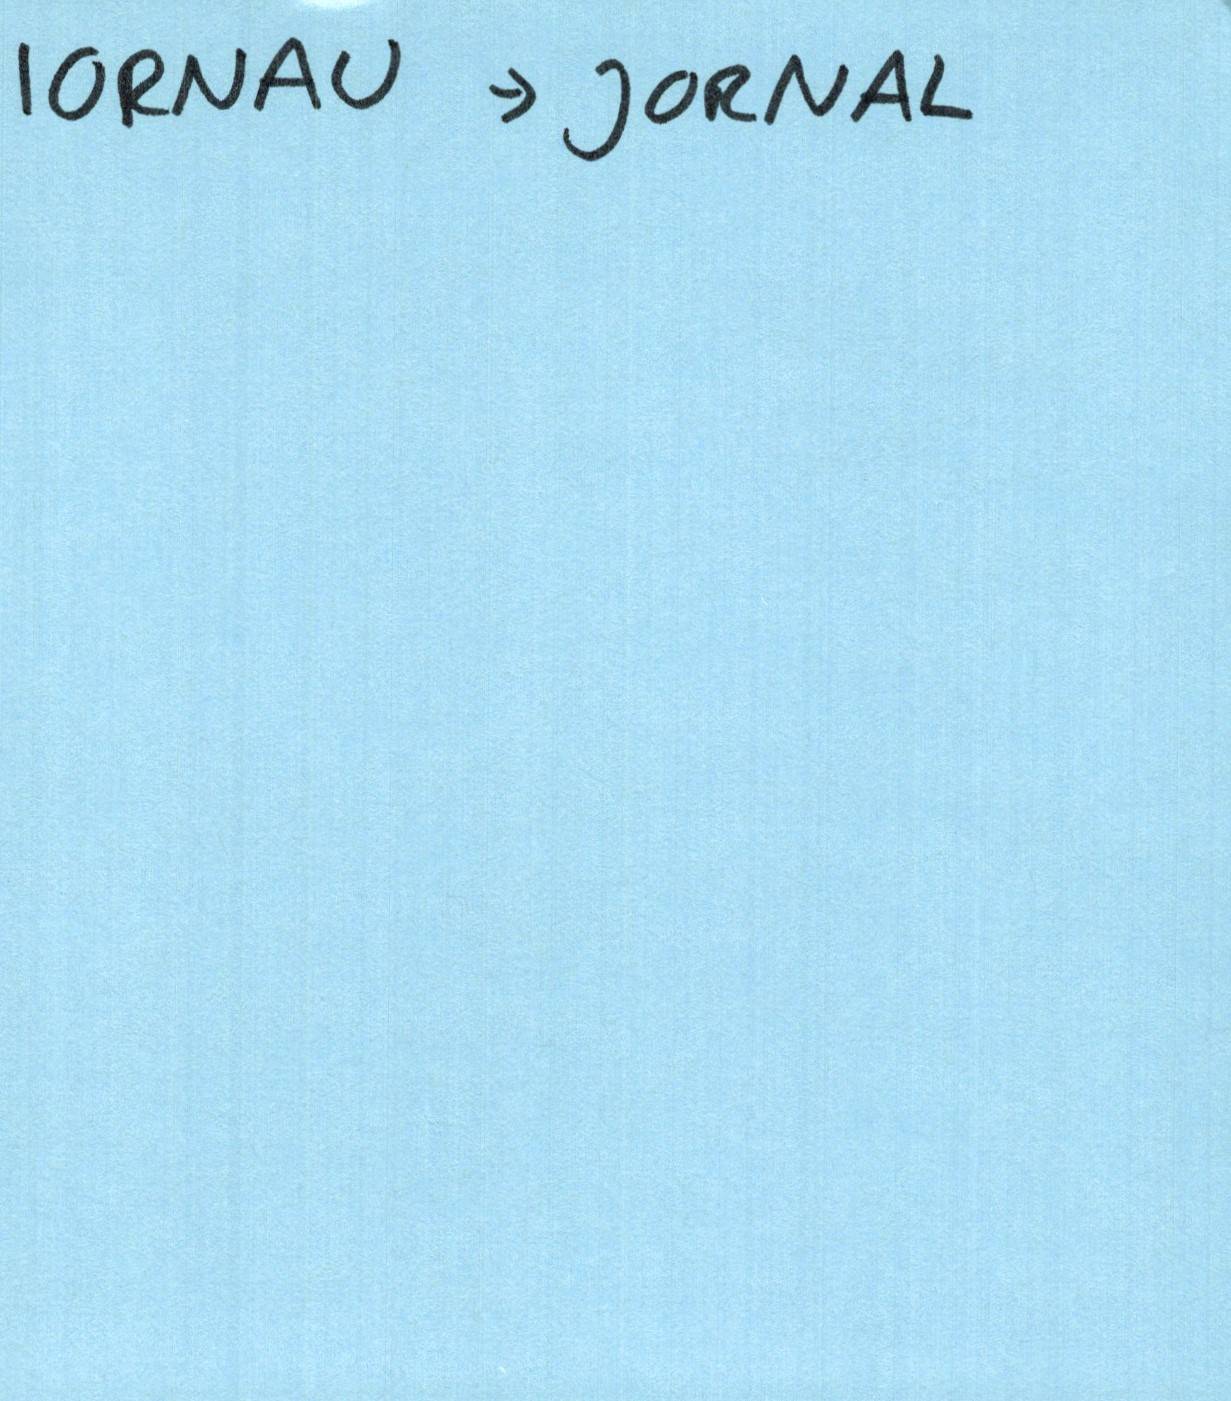 IORNAU → JORNAL